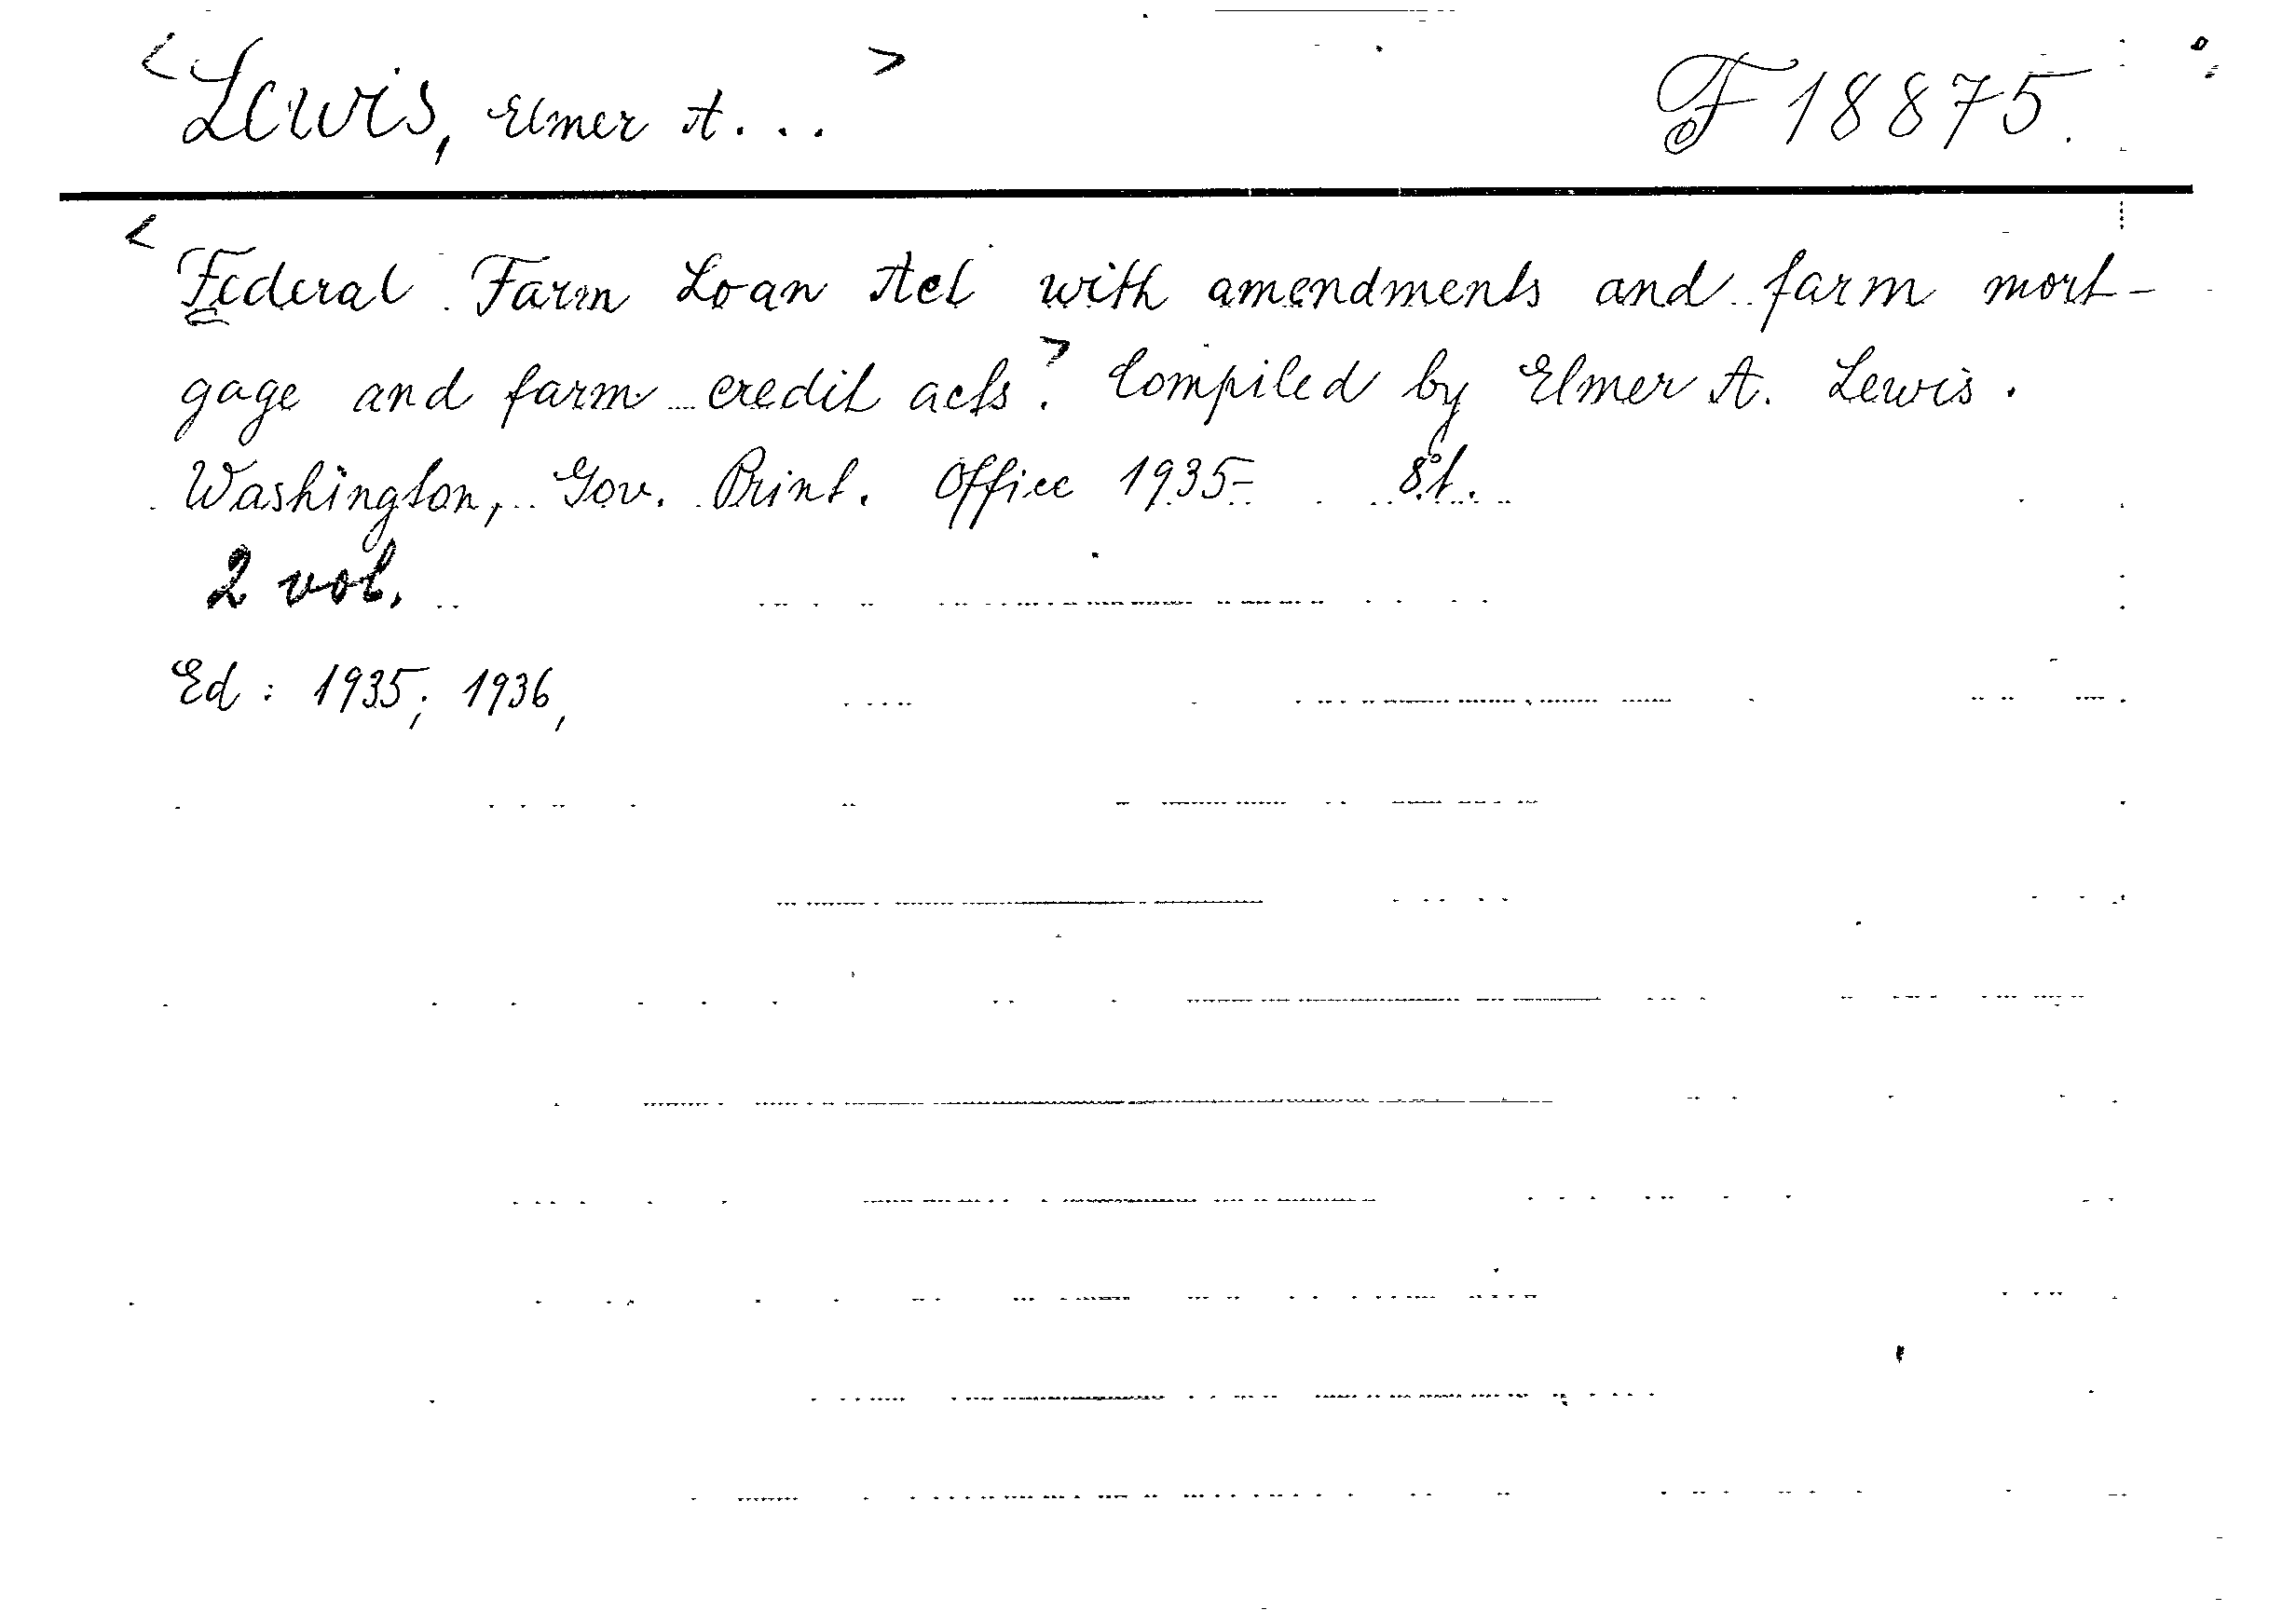 <Lewis, Elmer A...> F 18875.
<Federal Farm Loan Act with amendments and farm mort-
gage and farm credit acts.> Compiled by Elmer A. Lewis.
Washington, Gov. Print. Office 1935- 8°.
2 vol.
Ed: 1935; 1936,